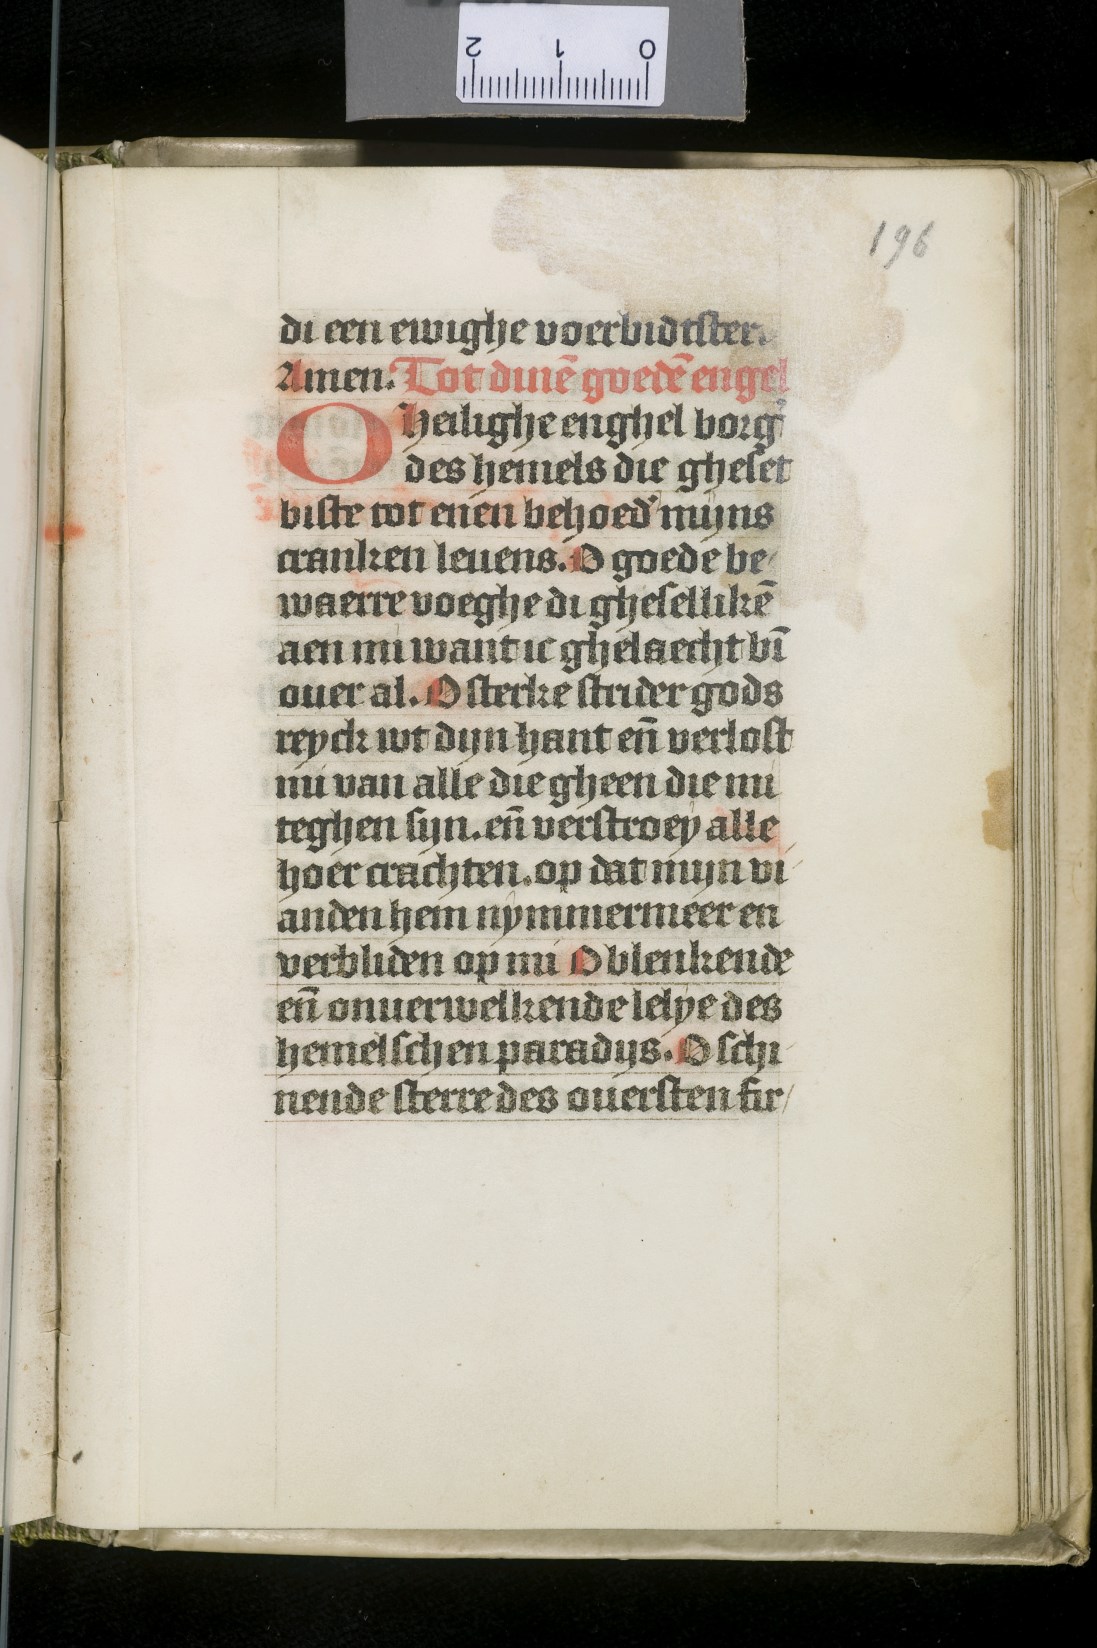 2 1 0
196
di een ewighe voerbidtster.
Amen. Tot dinē goedē engel
O Heilighe enghel borg̛
des hemels die gheset
biste tot enen behoed̛ mijns
cranken leuens. O goede be/
waerre voeghe di ghesellikē
aen mi want ic ghelaecht bī
ouer al. O sterke strider gods
reyck wt dijn hant en̄ verlost
mi van alle die gheen die mi
teghen sijn. en̄ verstroey alle
hoer crachten. op dat mijn vi/
anden hem nymmermeer en
verbliden op mi O blenkende
en̄ onuerwelkende lelye des
hemelschen paradijs. O schi/
nende sterre des ouersten fir/